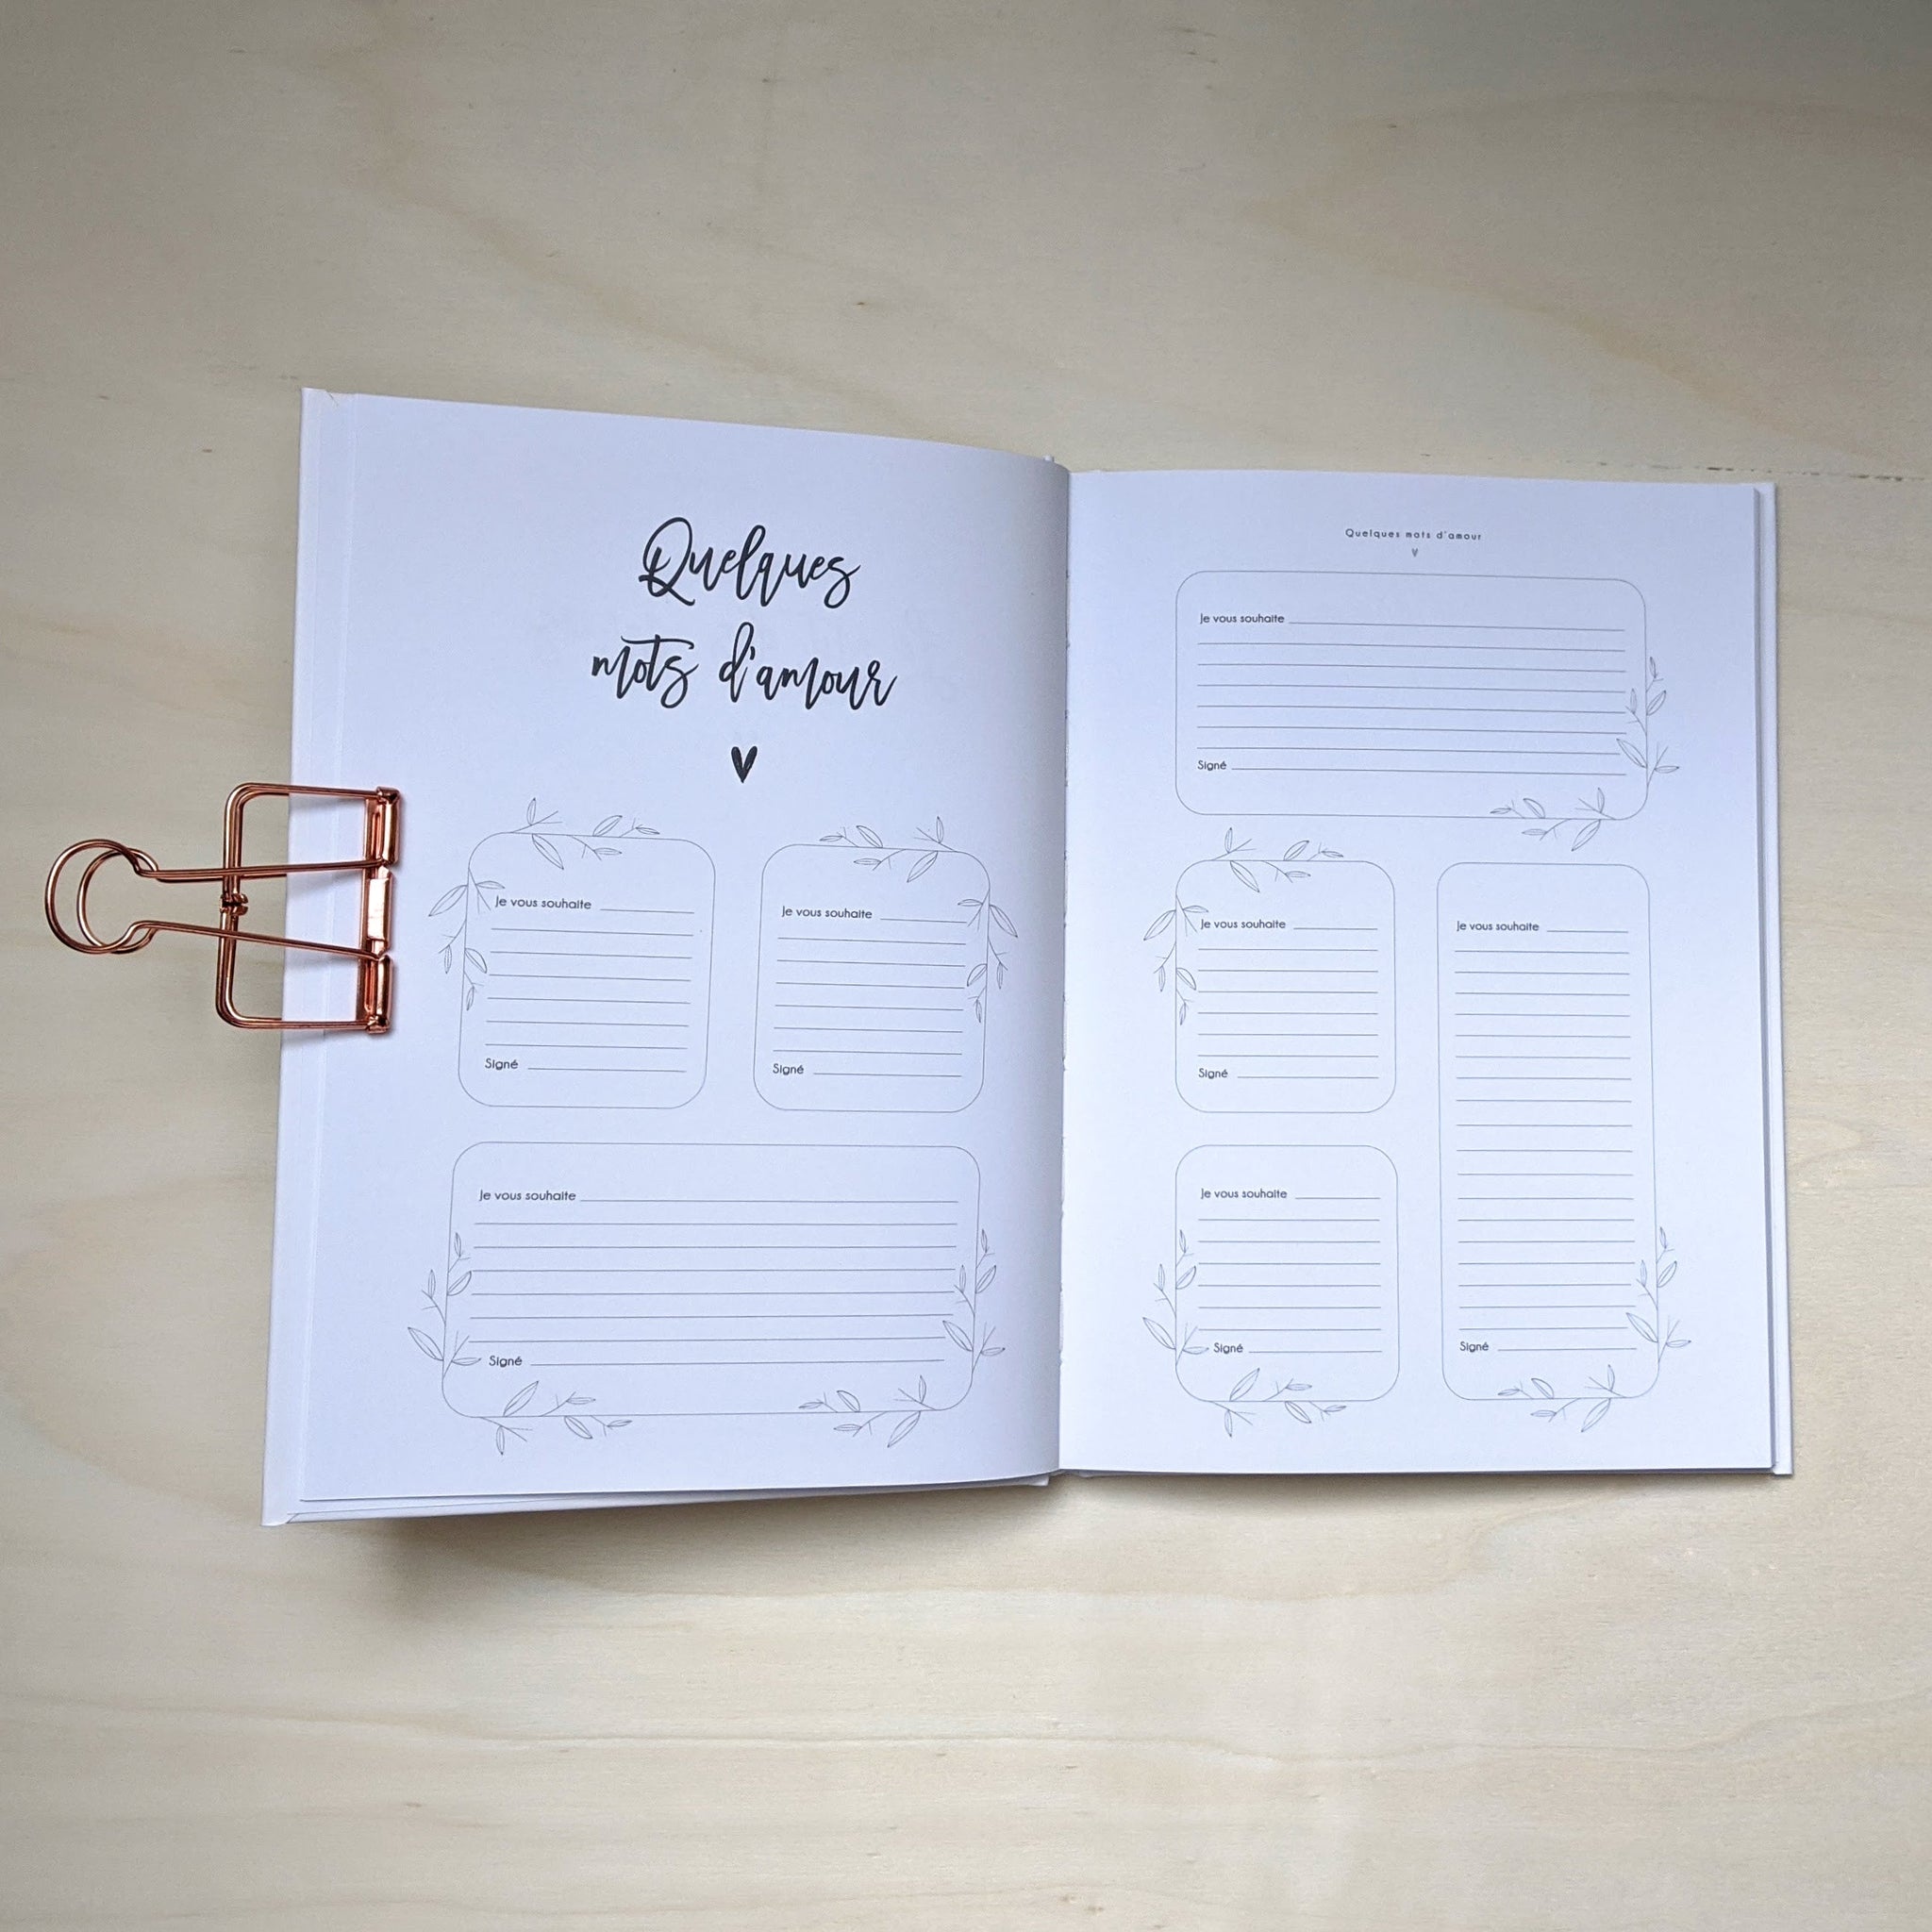 Quelques
mots d'amour
Je vous souhaite
Signé
Je vous souhaite
Signé
Je vous souhaite
Signé
Quelques mots d'amour
Je vous souhaite
Signé
Je vous souhaite
Signé
Je vous souhaite
Signé
Je vous souhaite
Signé